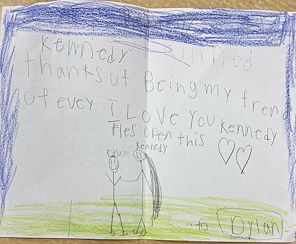 Kennedy
thanks of Being my frend
of evey I Love You Kennedy
Ples open this
Kennedy
to Dylan